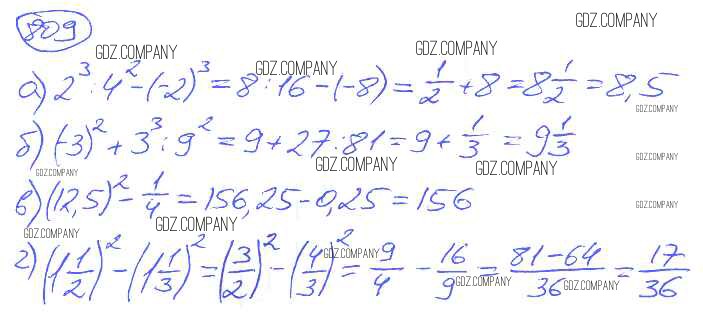 809
GDZ.COMPANY
GDZ.COMPANY GDZ.COMPANY
а) 2³ : 4² - (-2)³ = 8 : 16 - (-8) = 1/2 + 8 = 8 1/2 = 8,5
GDZ.COMPANY
GDZ.COMPANY
б) (-3)² + 3³ : 9² = 9 + 27 : 81 = 9 + 1/3 = 9 1/3
GDZ.COMPANY GDZ.COMPANY GDZ.COMPANY
GDZ.COMPANY
в) (12,5)² - 1/4 = 156,25 - 0,25 = 156
GDZ.COMPANY
GDZ.COMPANY GDZ.COMPANY
г) (1 1/2)² - (1 1/3)² = (3/2)² - (4/3)² = 9/4 - 16/9 = (81-64)/36 = 17/36
GDZ.COMPANY GDZ.COMPANY GDZ.COMPANY